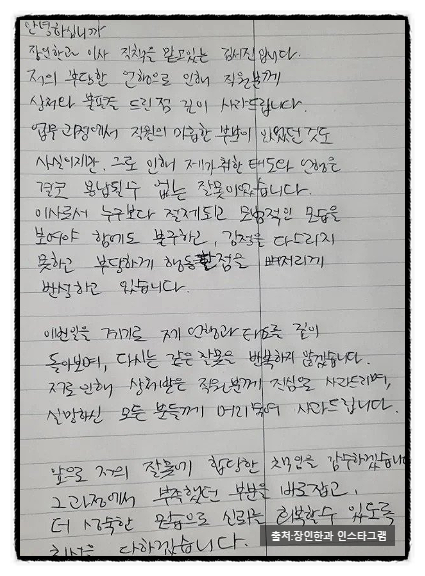 안녕하십니까
장인한과 이사 직책을 맡고있는 김서진입니다.
저의 부당한 언행으로 인해 직원분께
심려와 불편을 드린점 깊이 사과드립니다.
업무 과정에서 직원의 미흡한 부분이 있었던 것도
사실이지만, 그로 인해 제가 취한 태도와 언행은
결코 용납될수 없는 잘못이었습니다.
이사로서 누구보다 절제되고 모범적인 모습을
보여야 함에도 불구하고, 감정을 다스리지
못하고 부당하게 행동한점을 뼈저리게
반성하고 있습니다.
이번일을 계기로 제 언행과 태도를 깊이
돌아보며, 다시는 같은 잘못을 반복하지 않겠습니다.
저로인해 상처받은 직원분께 진심으로 사과드리며,
실망하신 모든 분들께 머리숙여 사과드립니다.
앞으로 저의 잘못에 합당한 책임을 감수하겠습니
그 과정에서 부족했던 부분을 바로잡고,
더 성숙한 모습으로 신뢰를 회복할수 있도록
최선을 다하겠습니다.
출처:장인한과 인스타그램